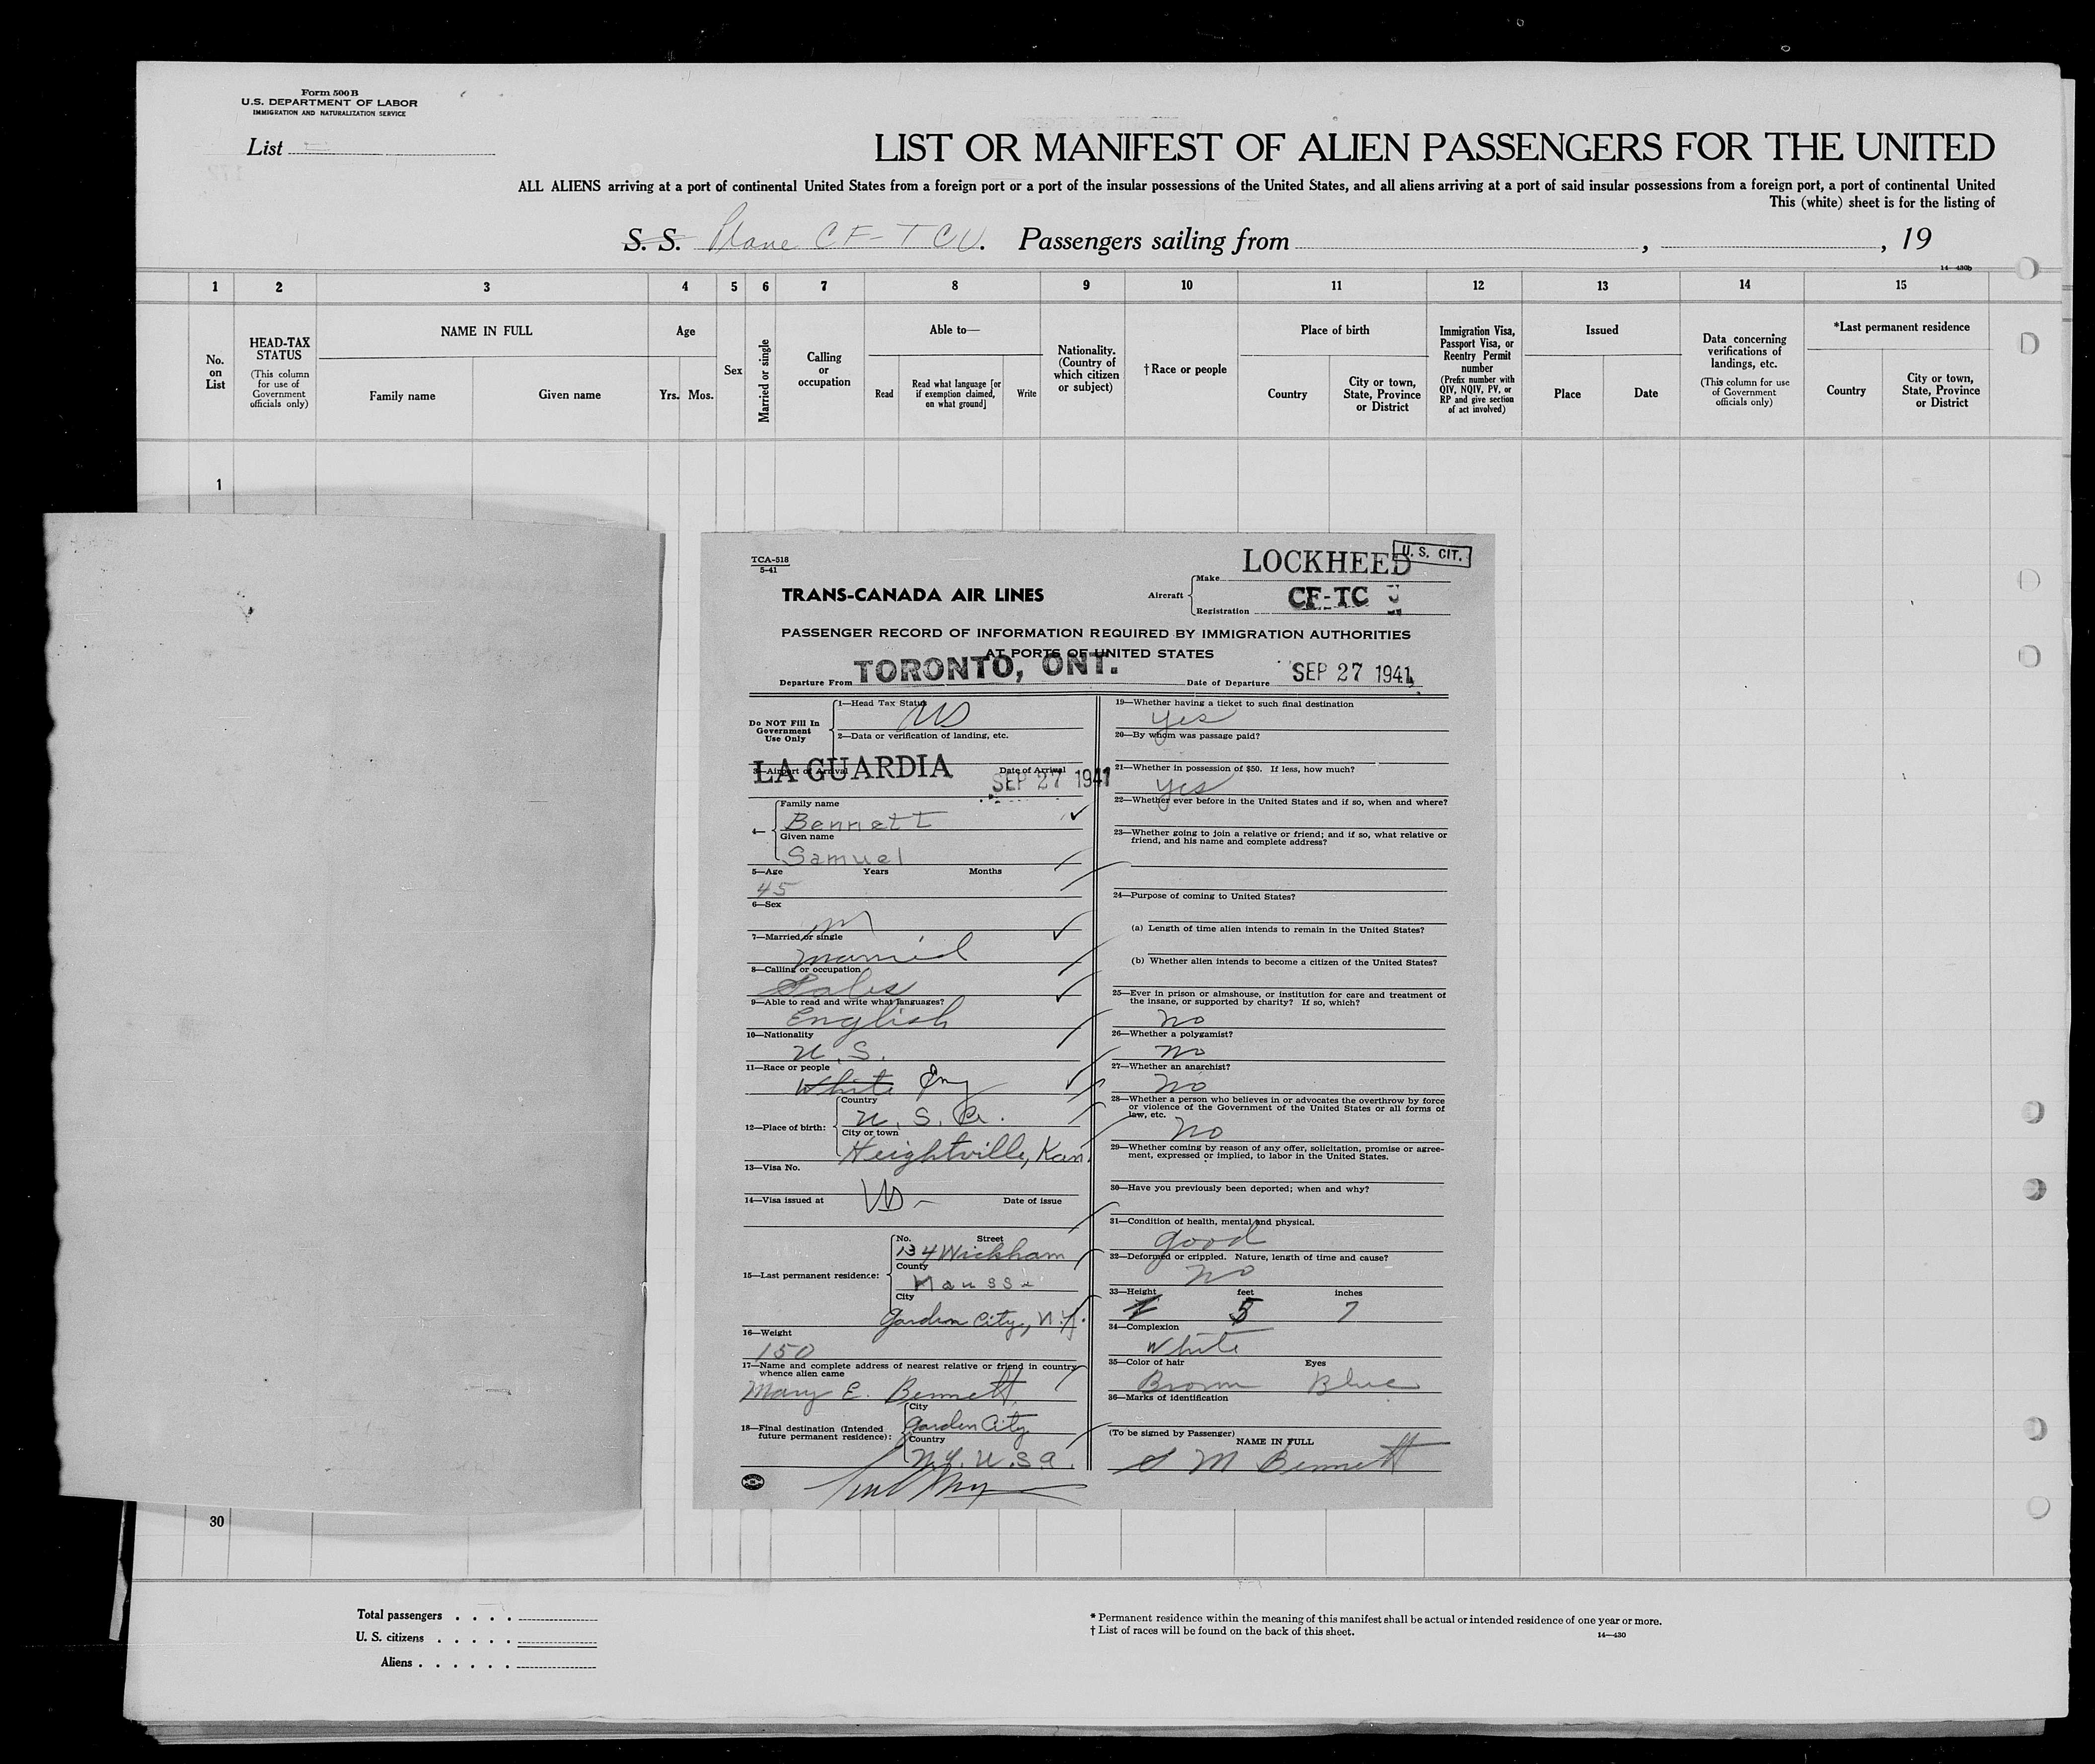 Form 500 B
U.S. DEPARTMENT OF LABOR
IMMIGRATION AND NATURALIZATION SERVICE
List
LIST OR MANIFEST OF ALIEN PASSENGERS FOR THE UNITED
ALL ALIENS arriving at a port of continental United States from a foreign port or a port of the insular possessions of the United States, and all aliens arriving at a port of said insular possessions from a foreign port, a port of continental United
This (white) sheet is for the listing of
S. S. Plane CF-TCU. Passengers sailing from , , 19
14—430b
1 2 3 4 5 6 7 8 9 10 11 12 13 14 15
No. on List
HEAD-TAX STATUS (This column for use of Government officials only)
NAME IN FULL
Family name Given name
Age
Yrs. Mos.
Sex
Married or single
Calling or occupation
Able to—
Read
Read what language [or if exemption claimed, on what ground]
Write
Nationality. (Country of which citizen or subject)
†Race or people
Place of birth
Country
City or town, State, Province or District
Immigration Visa, Passport Visa, or Reentry Permit number (Prefix number with QIV, NQIV, PV, or RP and give section of act involved)
Issued
Place Date
Data concerning verifications of landings, etc. (This column for use of Government officials only)
*Last permanent residence
Country
City or town, State, Province or District
1
TCA-518
5-41
LOCKHEED
U. S. CIT.
TRANS-CANADA AIR LINES
Aircraft
Make
Registration CF-TC
PASSENGER RECORD OF INFORMATION REQUIRED BY IMMIGRATION AUTHORITIES
AT PORTS OF UNITED STATES
Departure From TORONTO, ONT. Date of Departure SEP 27 1941
Do NOT Fill In Government Use Only
1—Head Tax Status
2—Data or verification of landing, etc.
3—Airport of Arrival LA GUARDIA Date of Arrival SEP 27 1941
4—
Family name
Bennett
Given name
Samuel
5—Age Years Months
45
6—Sex
M
7—Married or single
Married
8—Calling or occupation
Sales
9—Able to read and write what languages?
English
10—Nationality
U. S.
11—Race or people
White Eng
12—Place of birth:
Country
U. S. A.
City or town
Heightville, Kan.
13—Visa No.
14—Visa issued at Date of issue
15—Last permanent residence:
No. Street
134 Wickham
County
Nassau
City
Garden City, N.Y.
16—Weight
150
17—Name and complete address of nearest relative or friend in country whence alien came
Mary E. Bennett
18—Final destination (Intended future permanent residence):
City
Garden City
Country
N.Y. U.S.A.
19—Whether having a ticket to such final destination
yes
20—By whom was passage paid?
21—Whether in possession of $50. If less, how much?
yes
22—Whether ever before in the United States and if so, when and where?
23—Whether going to join a relative or friend; and if so, what relative or
friend, and his name and complete address?
24—Purpose of coming to United States?
(a) Length of time alien intends to remain in the United States?
(b) Whether alien intends to become a citizen of the United States?
25—Ever in prison or almshouse, or institution for care and treatment of
the insane, or supported by charity? If so, which?
no
26—Whether a polygamist?
no
27—Whether an anarchist?
no
28—Whether a person who believes in or advocates the overthrow by force
or violence of the Government of the United States or all forms of
law, etc.
no
29—Whether coming by reason of any offer, solicitation, promise or agree-
ment, expressed or implied, to labor in the United States.
30—Have you previously been deported; when and why?
31—Condition of health, mental and physical.
good
32—Deformed or crippled. Nature, length of time and cause?
no
33—Height feet inches
5 7
34—Complexion
White
35—Color of hair Eyes
Brown Blue
36—Marks of identification
(To be signed by Passenger)
NAME IN FULL
S M Bennett
30
Total passengers
U. S. citizens
Aliens
* Permanent residence within the meaning of this manifest shall be actual or intended residence of one year or more.
† List of races will be found on the back of this sheet.
14—430